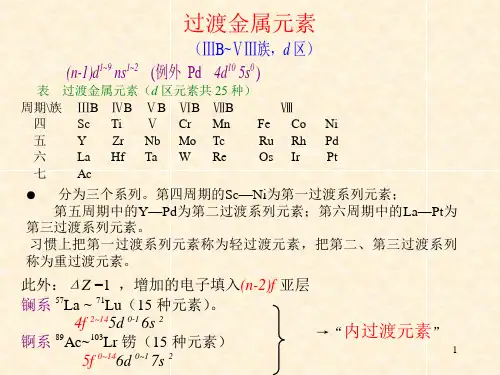 过渡金属元素
(ⅢB~ⅤⅢ族，d 区)
(n-1)d1~9 ns1~2 (例外 Pd 4d10 5s0)
表 过渡金属元素（d 区元素共 25 种）
周期\族 ⅢB ⅣB ⅤB ⅥB ⅦB Ⅷ
四 Sc Ti Ⅴ Cr Mn Fe Co Ni
五 Y Zr Nb Mo Tc Ru Rh Pd
六 La Hf Ta W Re Os Ir Pt
七 Ac
● 分为三个系列。第四周期的Sc—Ni为第一过渡系列元素；
第五周期中的Y—Pd为第二过渡系列元素；第六周期中的La—Pt为
第三过渡系列元素。
习惯上把第一过渡系列元素称为轻过渡元素，把第二、第三过渡系列
称为重过渡元素。
此外：ΔZ =1 ，增加的电子填入(n-2)f 亚层
镧系 57La ~ 71Lu（15 种元素）。
4f 2~145d 0-1 6s 2
锕系 89Ac~103Lr 铹（15 种元素）
5f 0~146d 0~1 7s 2
→ “内过渡元素”
1